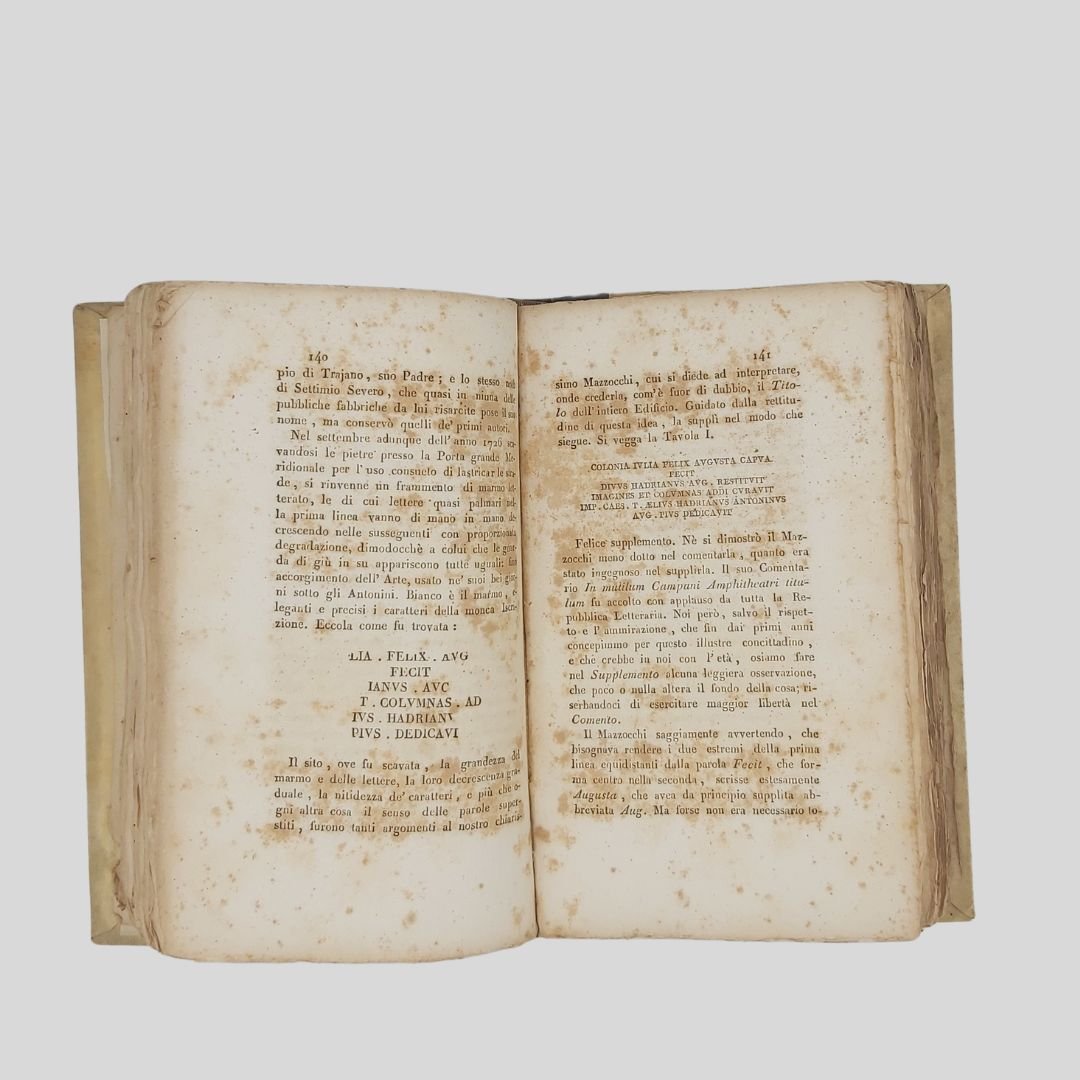 140
pio di Trajano, suo Padre; e lo stesso
di Settimio Severo, che quasi in niuna delle
pubbliche fabbriche da lui risarcite pose il suo
nome, ma conservò quelli de' primi autori.
Nel settembre adunque dell'anno 1726 sca-
vandosi le pietre presso la Porta grande Me-
ridionale per l'uso consueto di lastricar le stra-
de, si rinvenne un frammento di marmo let-
terato, le di cui lettere quasi palmari nel-
la prima linea vanno di mano in mano de-
crescendo nelle susseguenti con proporzionata
degradazione, dimodocchè a colui che le guar-
da di giù in su appariscono tutte uguali: fino
accorgimento dell'Arte, usato ne' suoi bei gior-
ni sotto gli Antonini. Bianco è il marmo, e-
leganti e precisi i caratteri della monca Iscri-
zione. Eccola come fu trovata:
LIA . FELIX . AVG
FECIT
IANVS . AVC
T . COLVMNAS . AD
IVS . HADRIANV
PIVS . DEDICAVI
Il sito, ove fu scavata, la grandezza del
marmo e delle lettere, la loro decrescenza gra-
duale, la nitidezza de' caratteri, e più che o-
gni altra cosa il senso delle parole super-
stiti, furono tanti argomenti al nostro chiaris-
141
simo Mazzocchi, cui si diede ad interpretare,
onde crederla, com'è fuor di dubbio, il Tito-
lo dell'intiero Edificio. Guidato dalla rettitu-
dine di questa idea, la supplì nel modo che
siegue. Si vegga la Tavola I.
COLONIA IVLIA FELIX AVGVSTA CAPVA
FECIT
DIVVS HADRIANVS AVG . RESTITVIT
IMAGINES ET COLVMNAS ADDI CVRAVIT
IMP . CAES . T . ÆLIVS HADRIANVS ANTONINVS
AVG . PIVS DEDICAVIT
Felice supplemento. Nè si dimostrò il Maz-
zocchi meno dotto nel comentarla, quanto era
stato ingegnoso nel supplirla. Il suo Comenta-
rio In mutilum Campani Amphitheatri titu-
lum fu accolto con applauso da tutta la Re-
pubblica Letteraria. Noi però, salvo il rispet-
to e l'ammirazione, che fin dai primi anni
concepimmo per questo illustre concittadino,
e che crebbe in noi con l'età, osiamo fare
nel Supplemento alcuna leggiera osservazione,
che poco o nulla altera il fondo della cosa; ri-
serbandoci di esercitare maggior libertà nel
Comento.
Il Mazzocchi saggiamente avvertendo, che
bisognava rendere i due estremi della prima
linea equidistanti dalla parola Fecit, che for-
ma centro nella seconda, scrisse estesamente
Augusta, che avea da principio supplita ab-
breviata Aug. Ma forse non era necessario to-